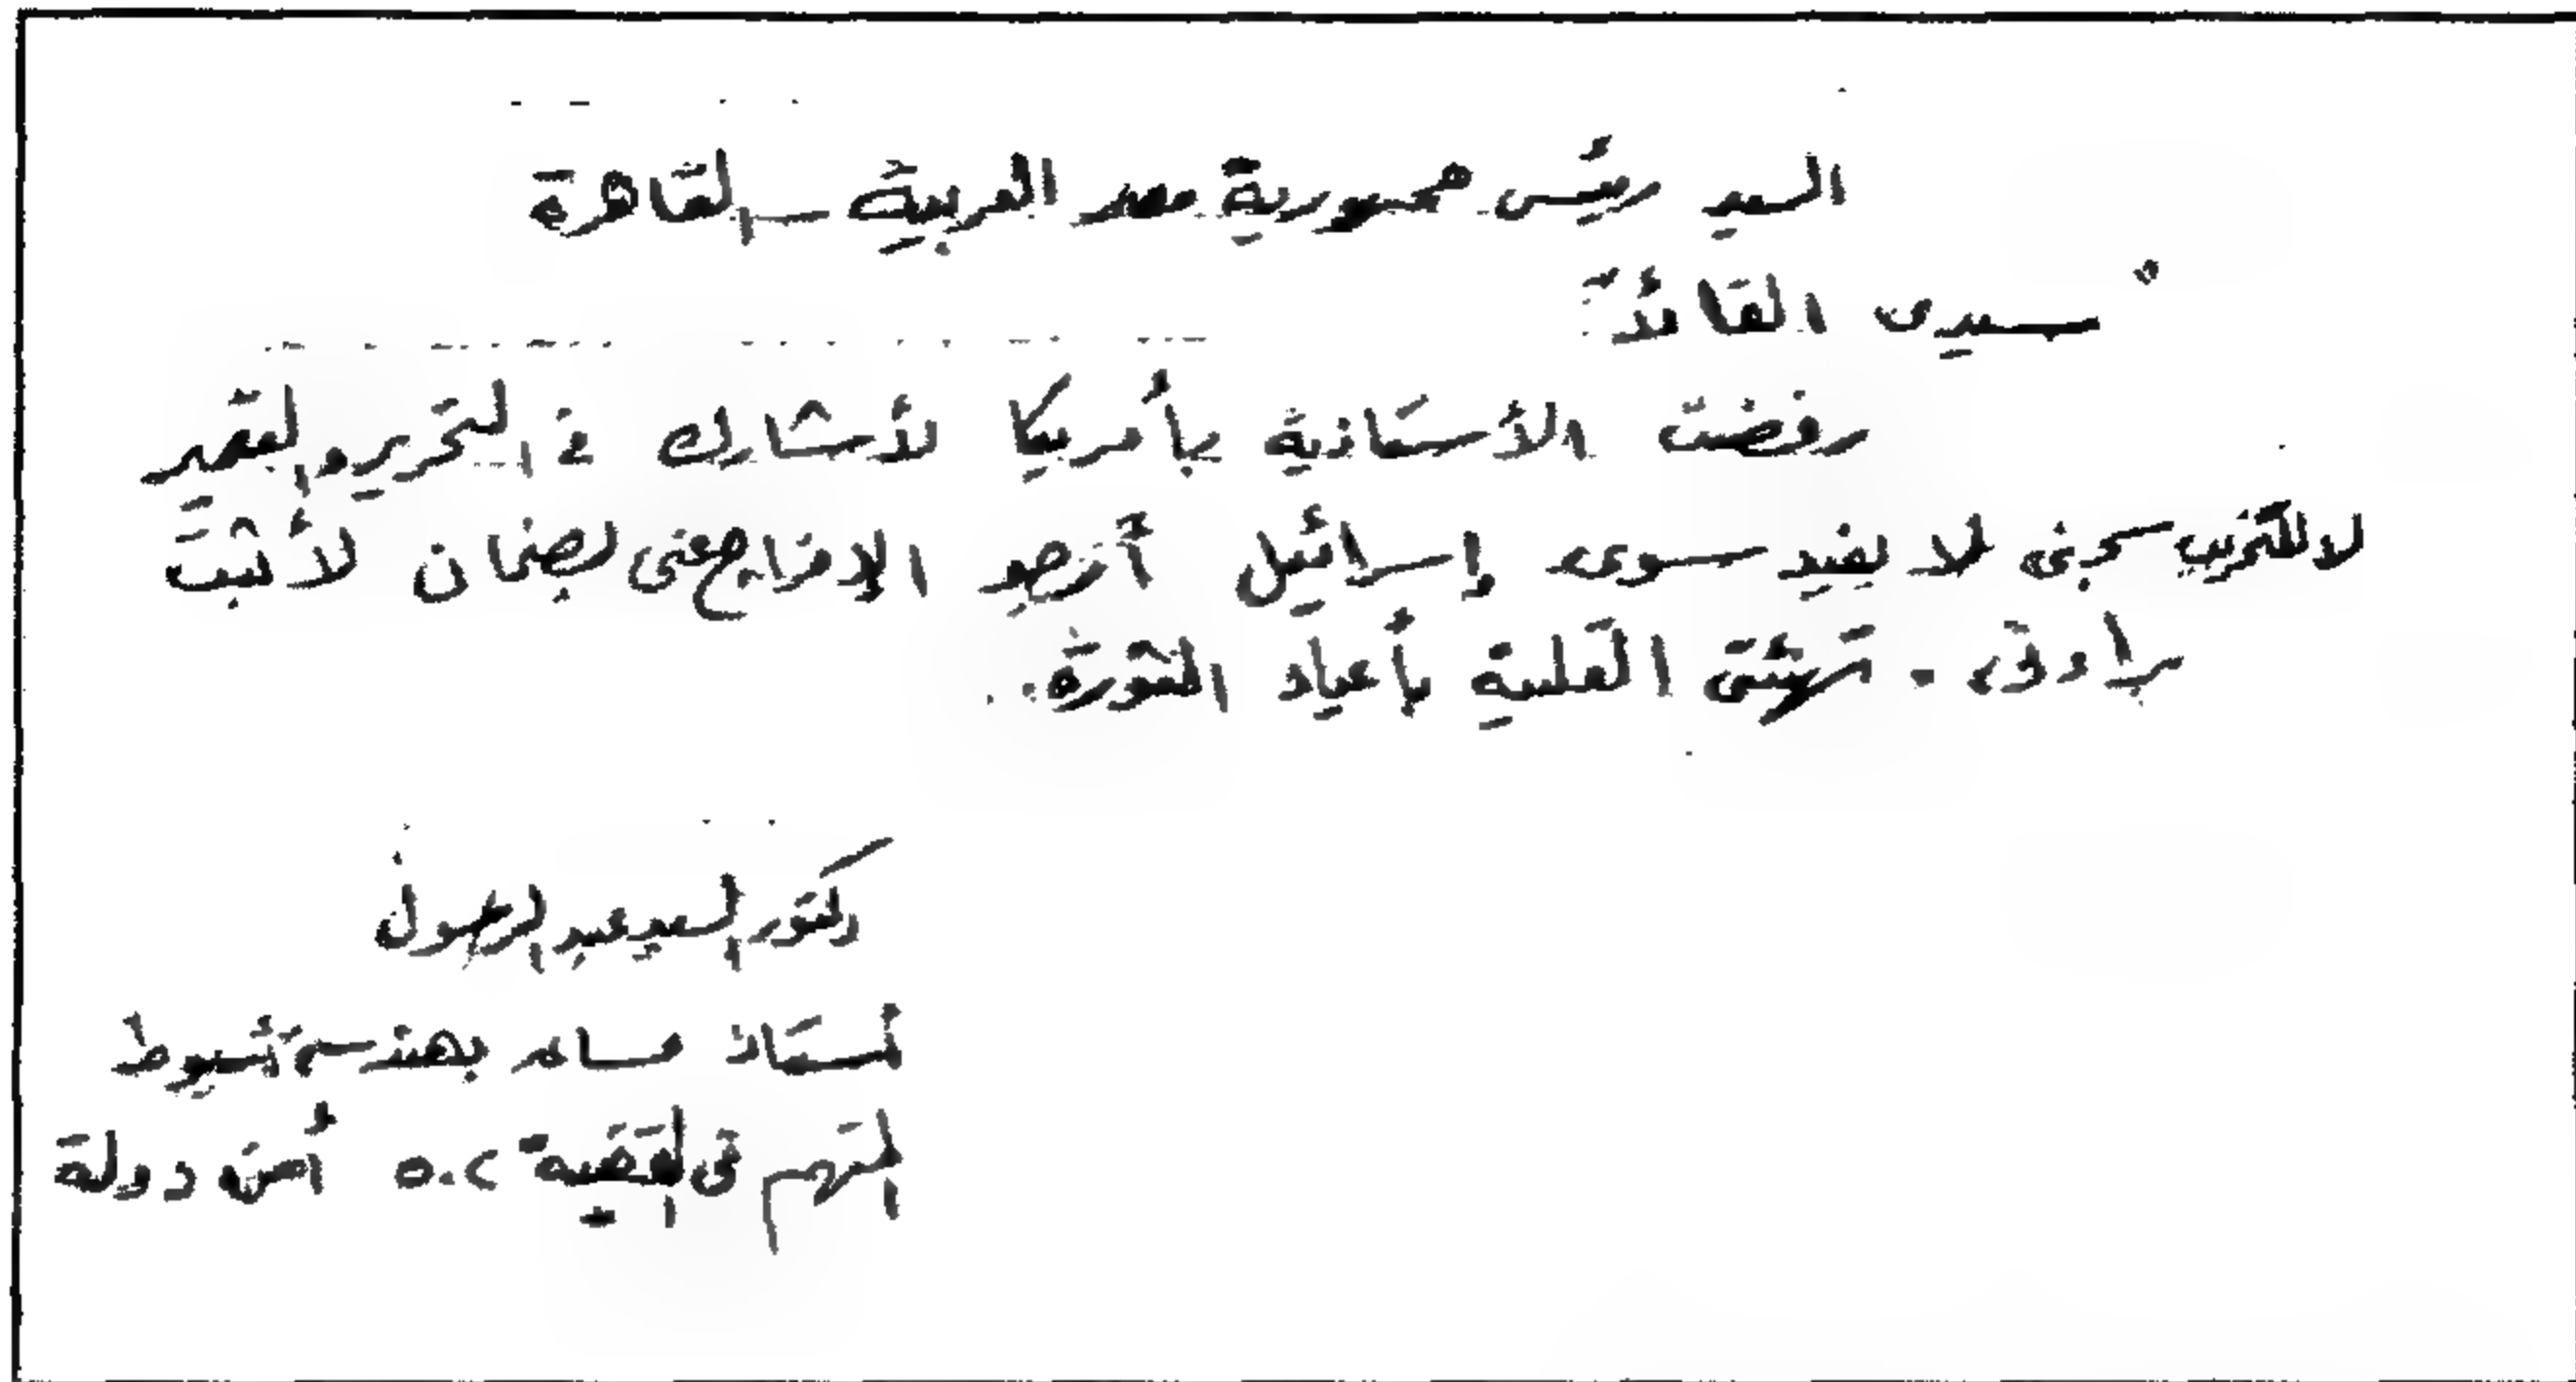 السيد رئيس جمهورية مصر العربية - القاهرة
" سيدى القائد
رفضت الأستاذية بأمريكا لأشارك فى التحرير والتعمير
لا للتخريب سجنى لا يفيد سوى إسرائيل أرجو الإفراج عنى بضمان لأثبت
براءتى . تهنئتى القلبية بأعياد الثورة ..
دكتور السيد عبد الرسول
أستاذ مساعد بهندسة أسيوط
المتهم فى القضية ٥٠٢ أمن دولة